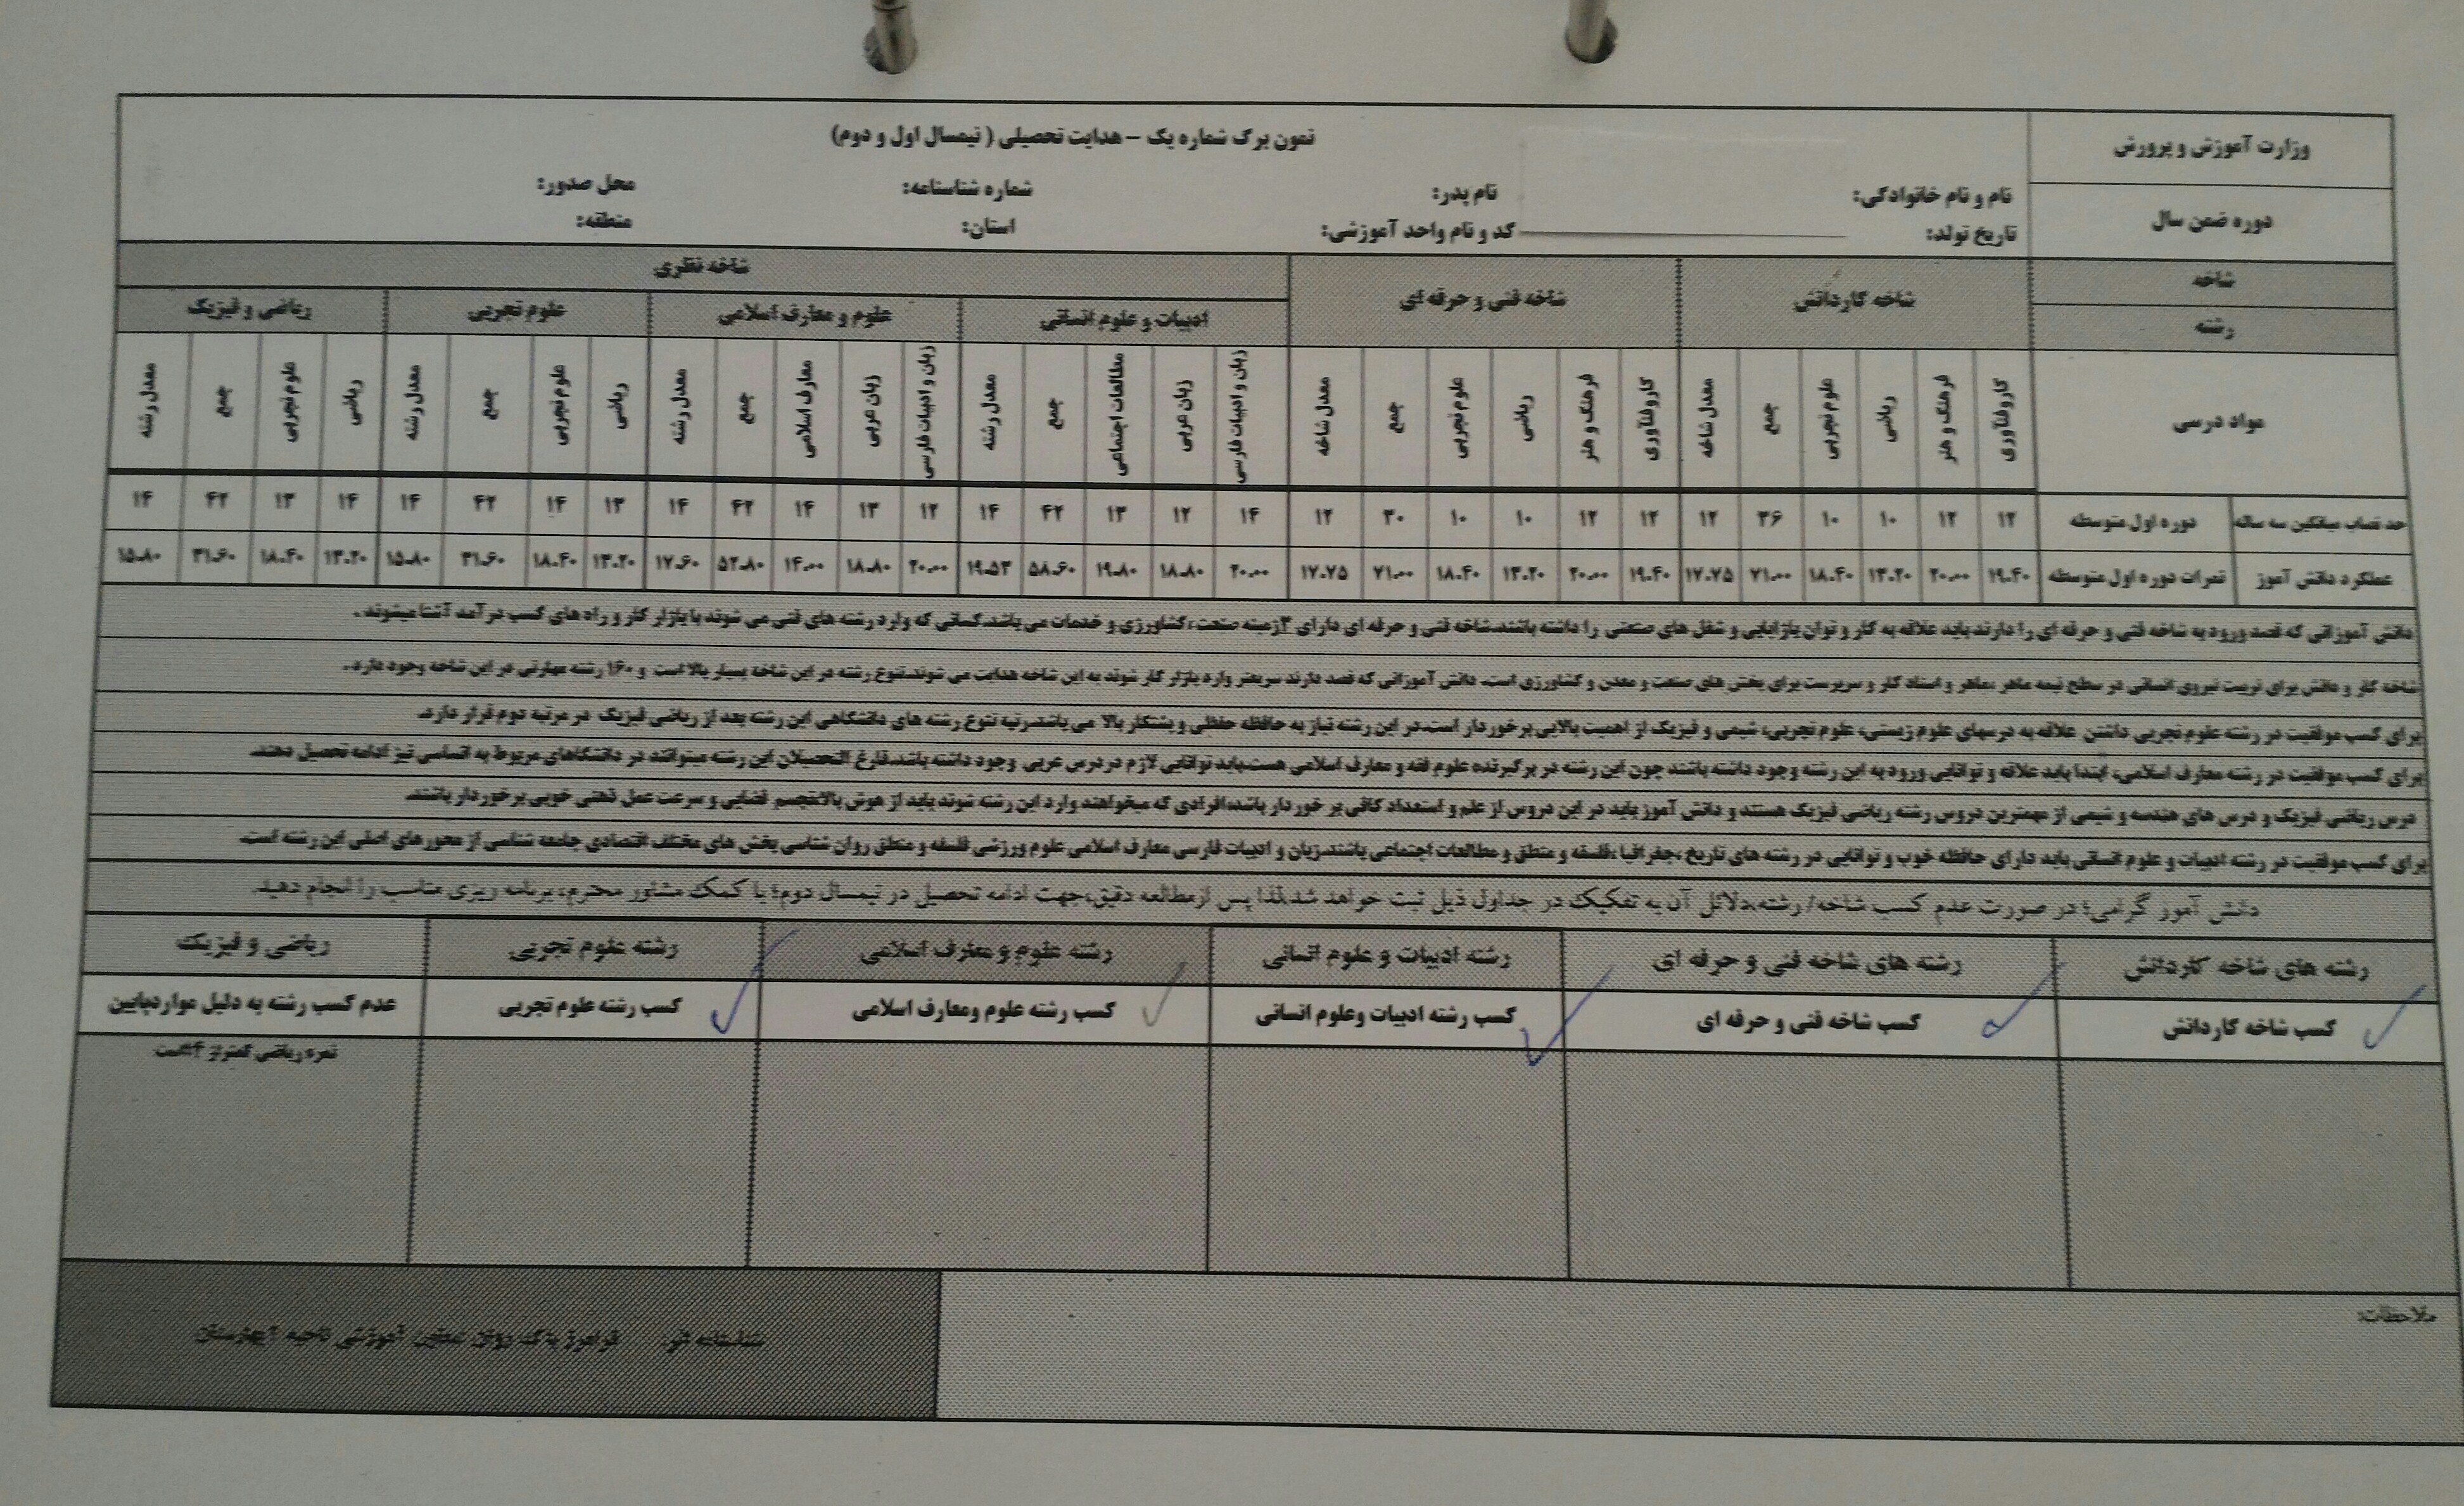 وزارت آموزش و پرورش
دوره ضمن سال
نمون برگ شماره یک – هدایت تحصیلی ( نیمسال اول و دوم)
نام و نام خانوادگی: نام پدر: شماره شناسنامه: محل صدور:
تاریخ تولد: کد و نام واحد آموزشی: استان: منطقه:
شاخه شاخه کاردانش شاخه فنی و حرفه ای شاخه نظری
رشته ادبیات و علوم انسانی علوم و معارف اسلامی علوم تجربی ریاضی و فیزیک
مواد درسی کاروفنآوری فرهنگ و هنر ریاضی علوم تجربی جمع معدل شاخه کاروفنآوری فرهنگ و هنر ریاضی علوم تجربی جمع معدل شاخه زبان و ادبیات فارسی زبان عربی مطالعات اجتماعی جمع معدل رشته زبان و ادبیات فارسی زبان عربی معارف اسلامی جمع معدل رشته ریاضی علوم تجربی جمع معدل رشته ریاضی علوم تجربی جمع معدل رشته
حد نصاب میانگین سه ساله دوره اول متوسطه ۱۲ ۱۲ ۱۰ ۱۰ ۳۶ ۱۲ ۱۲ ۱۲ ۱۰ ۱۰ ۳۰ ۱۲ ۱۴ ۱۲ ۱۳ ۴۲ ۱۴ ۱۲ ۱۳ ۱۴ ۴۲ ۱۴ ۱۳ ۱۴ ۴۲ ۱۴ ۱۴ ۱۳ ۴۲ ۱۴
عملکرد دانش آموز نمرات دوره اول متوسطه ۱۹.۴۰ ۲۰.۰۰ ۱۳.۲۰ ۱۸.۴۰ ۷۱.۰۰ ۱۷.۷۵ ۱۹.۴۰ ۲۰.۰۰ ۱۳.۲۰ ۱۸.۴۰ ۷۱.۰۰ ۱۷.۷۵ ۲۰.۰۰ ۱۸.۸۰ ۱۹.۸۰ ۵۸.۶۰ ۱۹.۵۳ ۲۰.۰۰ ۱۸.۸۰ ۱۴.۰۰ ۵۲.۸۰ ۱۷.۶۰ ۱۳.۲۰ ۱۸.۴۰ ۳۱.۶۰ ۱۵.۸۰ ۱۳.۲۰ ۱۸.۴۰ ۳۱.۶۰ ۱۵.۸۰
دانش آموزانی که قصد ورود به شاخه فنی و حرفه ای را دارند باید علاقه به کار و توان بازاریابی و شغل های صنعتی را داشته باشند.شاخه فنی و حرفه ای دارای ۳زمینه صنعت،کشاورزی و خدمات می باشد.کسانی که وارد رشته های فنی می شوند با بازار کار و راه های کسب درآمد آشنا میشوند.
شاخه کار و دانش برای تربیت نیروی انسانی در سطح نیمه ماهر ،ماهر و استاد کار و سرپرست برای بخش های صنعت و معدن و کشاورزی است. دانش آموزانی که قصد دارند سریعتر وارد بازار کار شوند به این شاخه هدایت می شوند.تنوع رشته در این شاخه بسیار بالا است و ۱۶۰ رشته مهارتی در این شاخه وجود دارد.
برای کسب موفقیت در رشته علوم تجربی داشتن علاقه به درسهای علوم زیستی، علوم تجربی، شیمی و فیزیک از اهمیت بالایی برخوردار است.در این رشته نیاز به حافظه حفظی و پشتکار بالا می باشد.رتبه تنوع رشته های دانشگاهی این رشته بعد از ریاضی فیزیک در مرتبه دوم قرار دارد.
برای کسب موفقیت در رشته معارف اسلامی، ابتدا باید علاقه و توانایی ورود به این رشته وجود داشته باشند چون این رشته در برگیرنده علوم فقه و معارف اسلامی هست.باید توانایی لازم در درس عربی وجود داشته باشد.فارغ التحصیلان این رشته میتوانند در دانشگاهای مربوط به انسانی نیز ادامه تحصیل دهند.
درس ریاضی فیزیک و درس های هندسه و شیمی از مهمترین دروس رشته ریاضی فیزیک هستند و دانش آموز باید در این دروس از علم و استعداد کافی بر خوردار باشد.افرادی که میخواهند وارد این رشته شوند باید از هوش بالا،تجسم فضایی و سرعت عمل ذهنی خوبی برخوردار باشند.
برای کسب موفقیت در رشته ادبیات و علوم انسانی باید دارای حافظه خوب و توانایی در رشته های تاریخ ،جغرافیا ،فلسفه و منطق و مطالعات اجتماعی باشند.زبان و ادبیات فارسی معارف اسلامی علوم ورزشی فلسفه و منطق روان شناسی بخش های مختلف اقتصادی جامعه شناسی از محورهای اصلی این رشته است.
دانش آموز گرامی؛ در صورت عدم کسب شاخه/ رشته،دلائل آن به تفکیک در جداول ذیل ثبت خواهد شد.لذا پس از مطالعه دقیق،جهت ادامه تحصیل در نیمسال دوم؛ با کمک مشاور محترم، برنامه ریزی مناسب را انجام دهید.
رشته های شاخه کاردانش رشته های شاخه فنی و حرفه ای رشته ادبیات و علوم انسانی رشته علوم و معارف اسلامی رشته علوم تجربی ریاضی و فیزیک
کسب شاخه کاردانش کسب شاخه فنی و حرفه ای کسب رشته ادبیات وعلوم انسانی کسب رشته علوم ومعارف اسلامی کسب رشته علوم تجربی عدم کسب رشته به دلیل مواردپایین
نمره ریاضی کمتر از ۱۴است
ملاحظات: